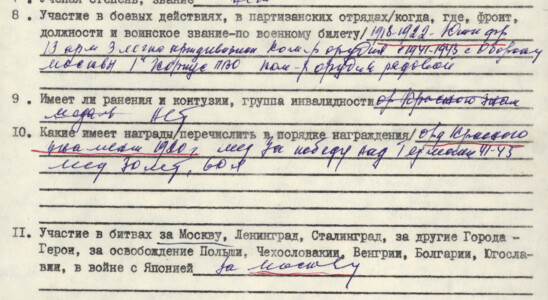 8 . Участие в боевых действиях, в партизанских отрядах/когда, где, фронт,
должности и воинское звание-по военному билету/ 1918-1922
13 арм 3 ком-р орудия с 1941-1943 г Оборона
Москвы 1й Корпус ПВО ком-р орудия рядовой
9 . Имеет ли ранения и контузии, группа инвалидности
медаль нет
10. Какие имеет награды/перечислить в порядке награждения/ орд Красного
знамени 1920г. мед за победу над Германией 41-45
мед 30 лет,
II. Участие в битвах за Москву, Ленинград, Сталинград, за другие Города -
Герои, за освобождение Польши, Чехословакии, Венгрии, Болгарии, Югосла-
вии, в войне с Японией за Москву